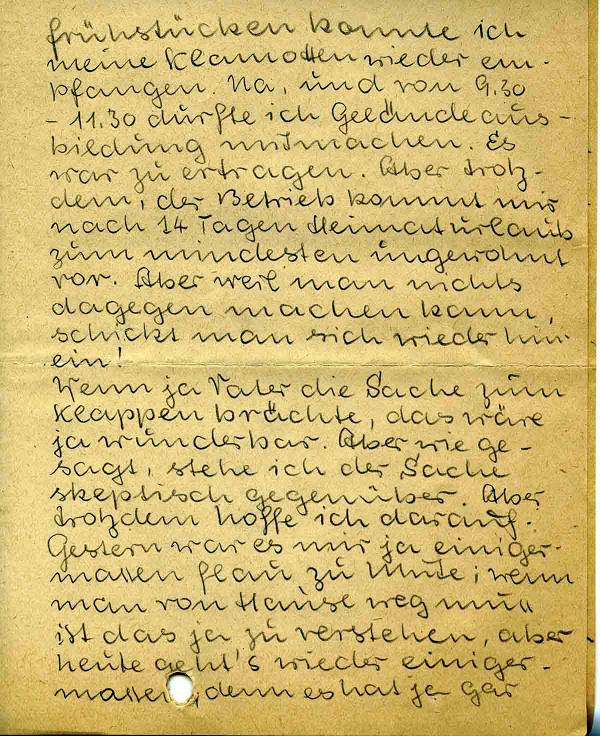 frühstücken konnte ich
meine Klamotten wieder em-
pfangen. Na, und von 9.30
- 11.30 durfte ich Geländeaus-
bildung mitmachen. Es
war zu ertragen. Aber trotz-
dem, der Betrieb kommt mir
nach 14 Tagen Heimaturlaub
zum mindesten ungewohnt
vor. Aber weil man nichts
dagegen machen kann,
schickt man sich wieder hin-
ein!
Wenn ja Vater die Sache zum
klappen brächte, das wäre
ja wunderbar. Aber wie ge-
sagt, stehe ich der Sache
skeptisch gegenüber. Aber
trotzdem hoffe ich darauf.
Gestern war es mir ja einiger-
massen flau zu Mute; wenn
man von Hause weg muss
ist das ja zu verstehen, aber
heute geht's wieder einiger-
massen, denn es hat ja gar